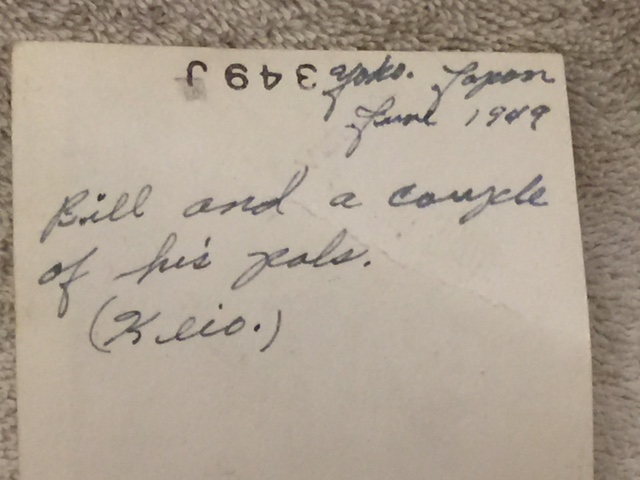 349J Yoko. Japan
June 1949
Bill and a couple
of his pals.
(Keio.)